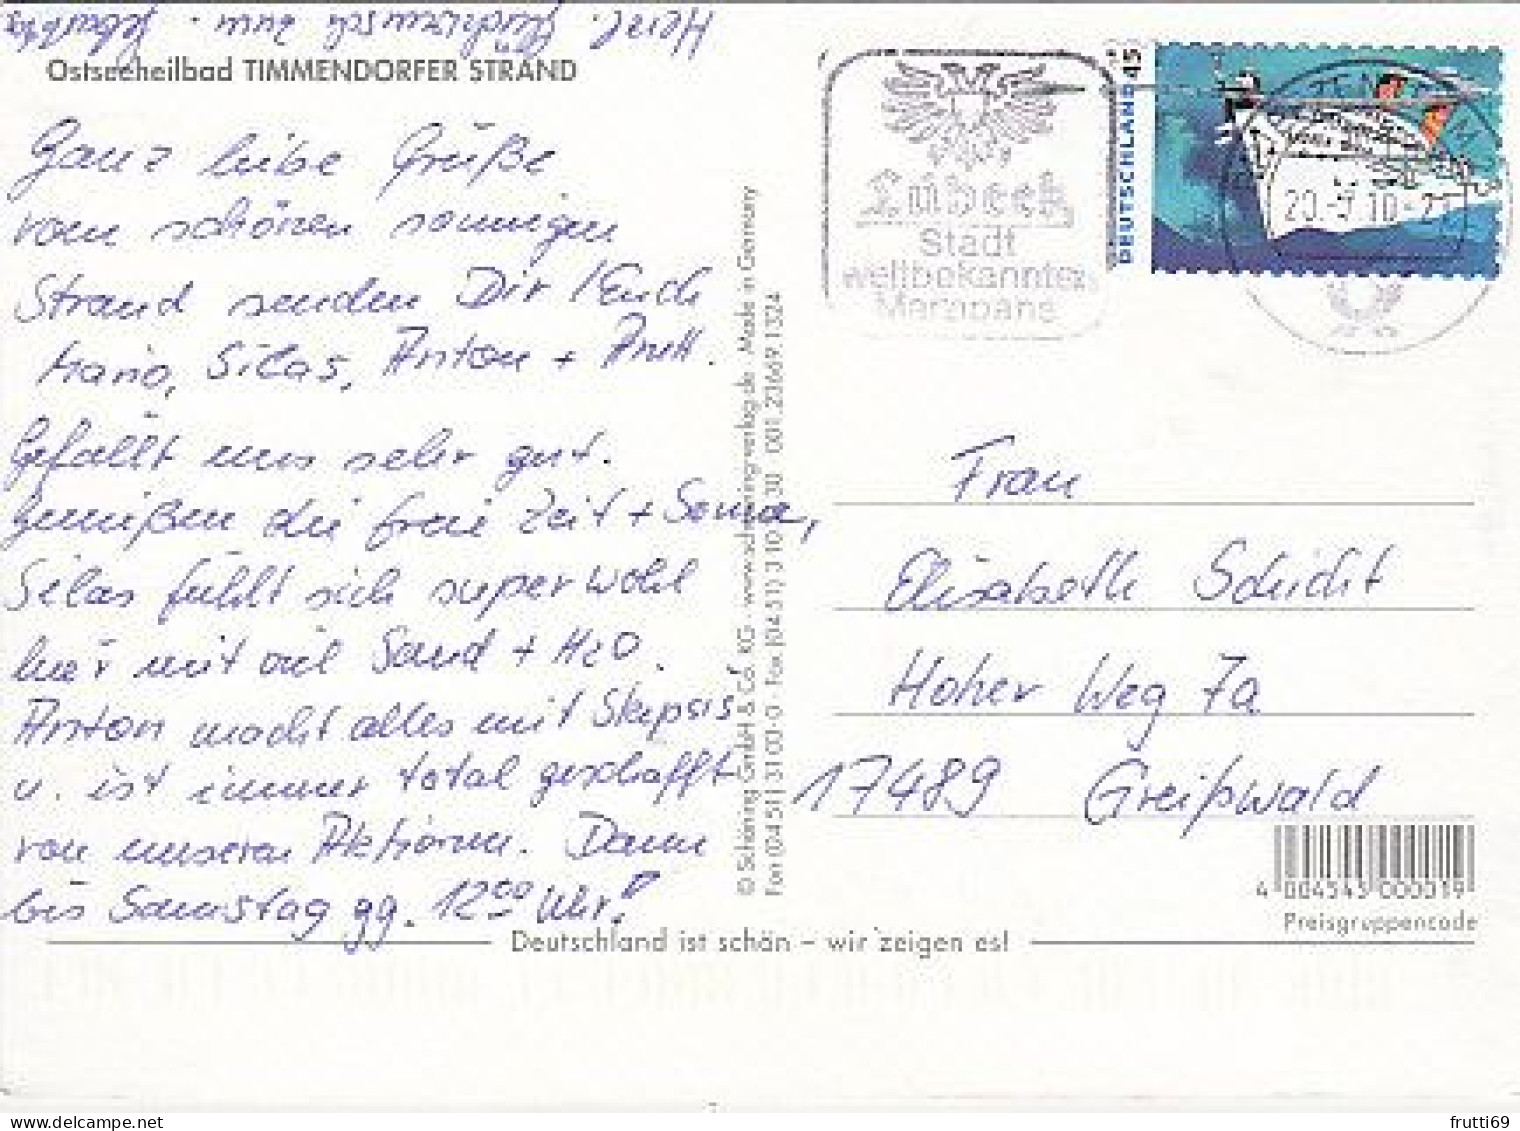 Herzl. Glückwunsch zum
Ostseeheilbad TIMMENDORFER STRAND
Ganz liebe Grüße
vom schönen sonnigen
Strand senden Dir / Euch
Mario, Silas, Anton + Anett.
Gefällt uns sehr gut.
Genießen die freie Zeit + Sonne,
Silas fühlt sich super wohl
hier mit viel Sand + H2O.
Anton macht alles mit Skepsis
u. ist immer total geschafft
von unseren Aktionen. Dann
bis Samstag gg. 12 00 Uhr!
© Schöning GmbH & Co. KG · www.schoeningverlag.de · Made in Germany
Fon (04 51) 31 03-0 · Fax (04 51) 3 10 30 001 23669 1324
Lübeck
Stadt
weltbekannten
Marzipans
DEUTSCHLAND 45
20.-7.10-21
Frau
Elisabeth Schicht
Hoher Weg 7a
17489 Greifswald
4 004545 000019
Preisgruppencode
Deutschland ist schön – wir zeigen es!
frutti69